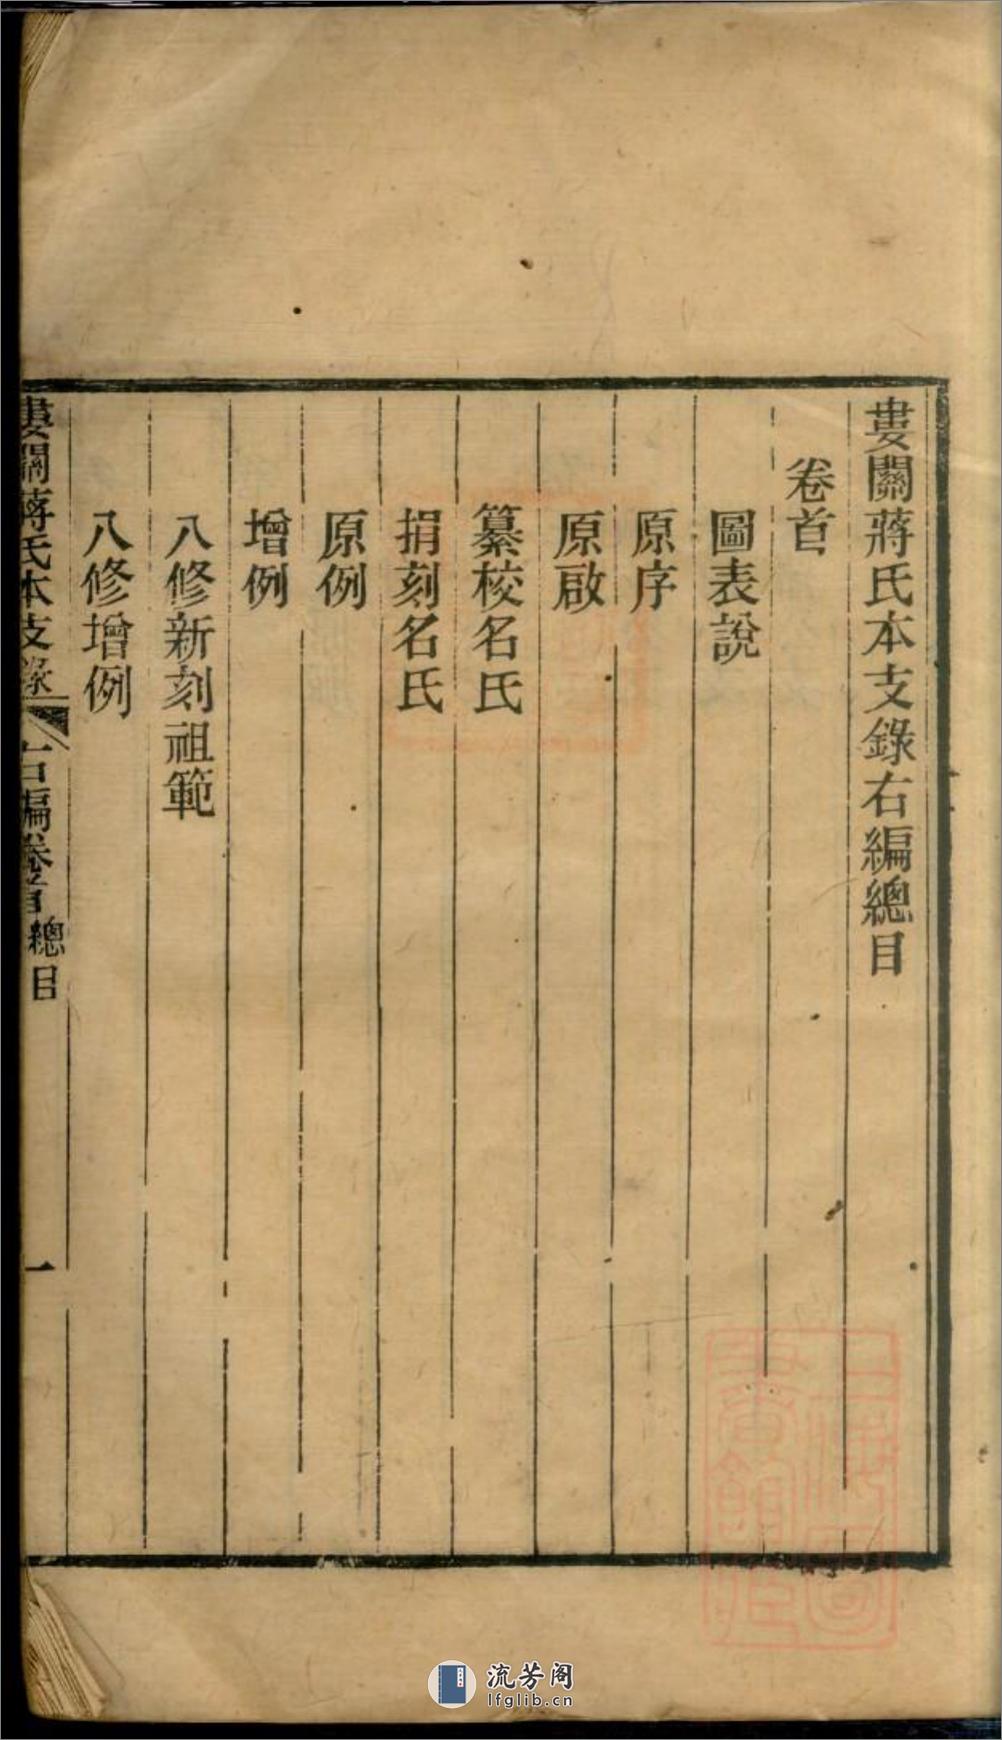 婁關蔣氏本支錄右編總目
卷首
圖表說
原序
原啟
纂校名氏
捐刻名氏
原例
增例
八修新刻祖範
八修增例
婁關蔣氏本支錄
右編卷首
總目
一
流芳阁
lfglib.cn